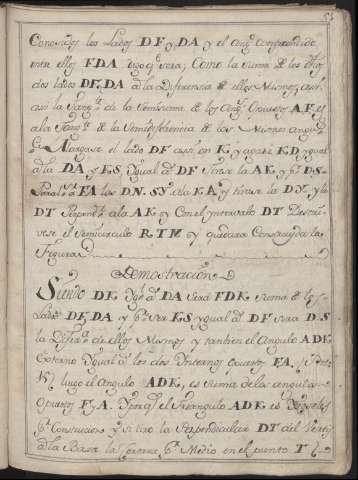 Conosidos los Lados DF y DA y el Angº comprendido
entre ellos FDA digo qᵉ sera; Como la suma de los dhos
dos lados DF, DA ala Diferencia de ellos Mismos, asi
sera la Tangᵗᵉ de la semisuma de los Angˢ Opuestos A, F, a
ala Tangᵗᵉ de la Semidiferencia de los Mismos Angˢ
Alargase el lado DF asta en K y agase KD ygual
ala DA y KS ygual al DF tirase la AK y pʳ DS
Paralˢ a FA los DN, SY, ala KA, y tirese la DY, y la
DT Perpendʳ ala AK y Con el yntervalo DT Descri-
vese el semicirculo RTM y quedara Construyda la
Figura
Demostracion
Siendo DK Ygl a DA sera FDK suma de los
Lados DF, DA y pʳ ser KS ygual al DF sera DS
la Difrᵃ de ellos Mismos y tambien el Angulo ADK
Externo Ygual a los dos Ynternos opuestos FA
luego el Angulo ADK, es suma de los angulos
Opuestos F y A. Y por qᵉ el triangulo ADK es Ysoseles
pʳ Construcion y si tiro la Perpendicular DT del Vertiz
ala Basa la Cortara pʳ Medio en el punto T